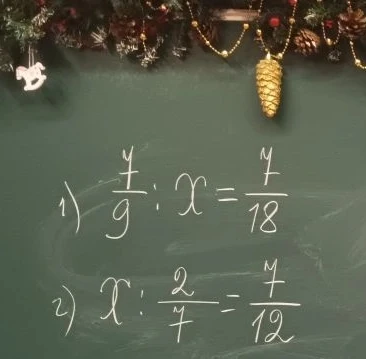 1) 7/9 : x = 7/18
2) x : 2/7 = 7/12